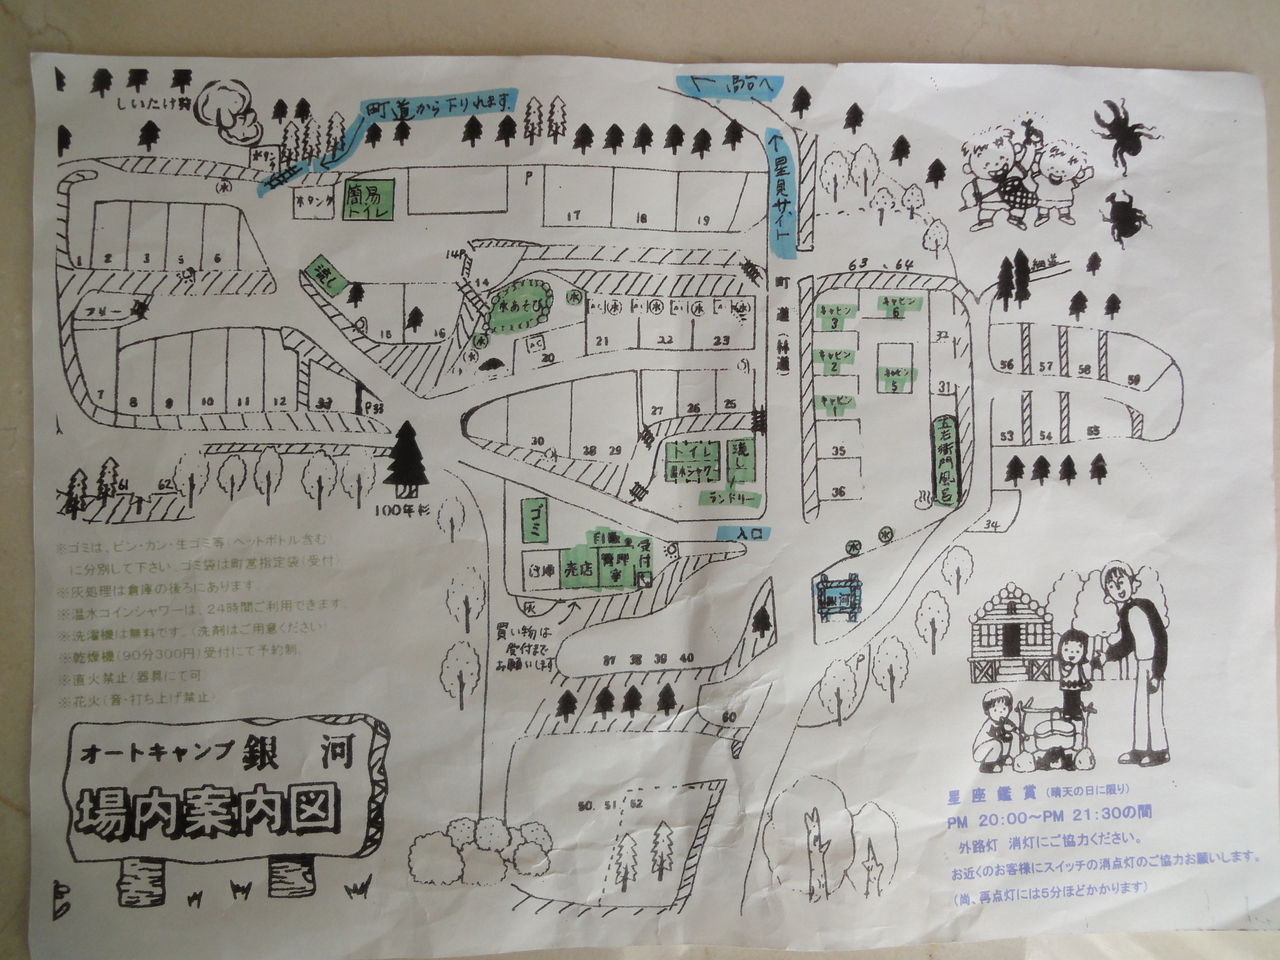 しいたけ
町道から下りれます
水タンク
水タンク
簡易
トイレ
P
17
18
19
↑星見サイト
1
2
3
5
6
流し
14
15
16
水あそび
水
水
水
水
水
水
20
21
22
23
AC
町道(林道)
63
64
キャビン
3
キャビン
6
キャビン
2
キャビン
5
キャビン
1
32
31
35
36
五右衛門風呂
56
57
58
59
53
54
55
34
フリー
7
8
9
10
11
12
33
30
28
29
27
26
25
トイレ
温水シャワー
流し
ランドリー
入口
61
62
100年杉
ゴミ
倉庫
売店
管理
室
受付
灰
買い物は
受付まで
お願いします
水
水
銀河
P
37
38
39
40
60
50
51
52
※ゴミは、ビン・カン・生ゴミ等(ペットボトル含む)
に分別して下さい、ゴミ袋は町営指定袋(受付)
※灰処理は倉庫の後ろにあります。
※温水コインシャワーは、24時間ご利用できます。
※洗濯機は無料です。(洗剤はご用意ください)
※乾燥機(90分300円)受付にて予約制。
※直火禁止(器具にて可)
※花火(音・打ち上げ禁止)
オートキャンプ 銀 河
場内案内図
星 座 鑑 賞 (晴天の日に限り)
PM 20:00〜PM 21:30の間
外路灯 消灯にご協力ください。
お近くのお客様にスイッチの消点灯のご協力お願いします。
(尚、再点灯には5分ほどかかります)